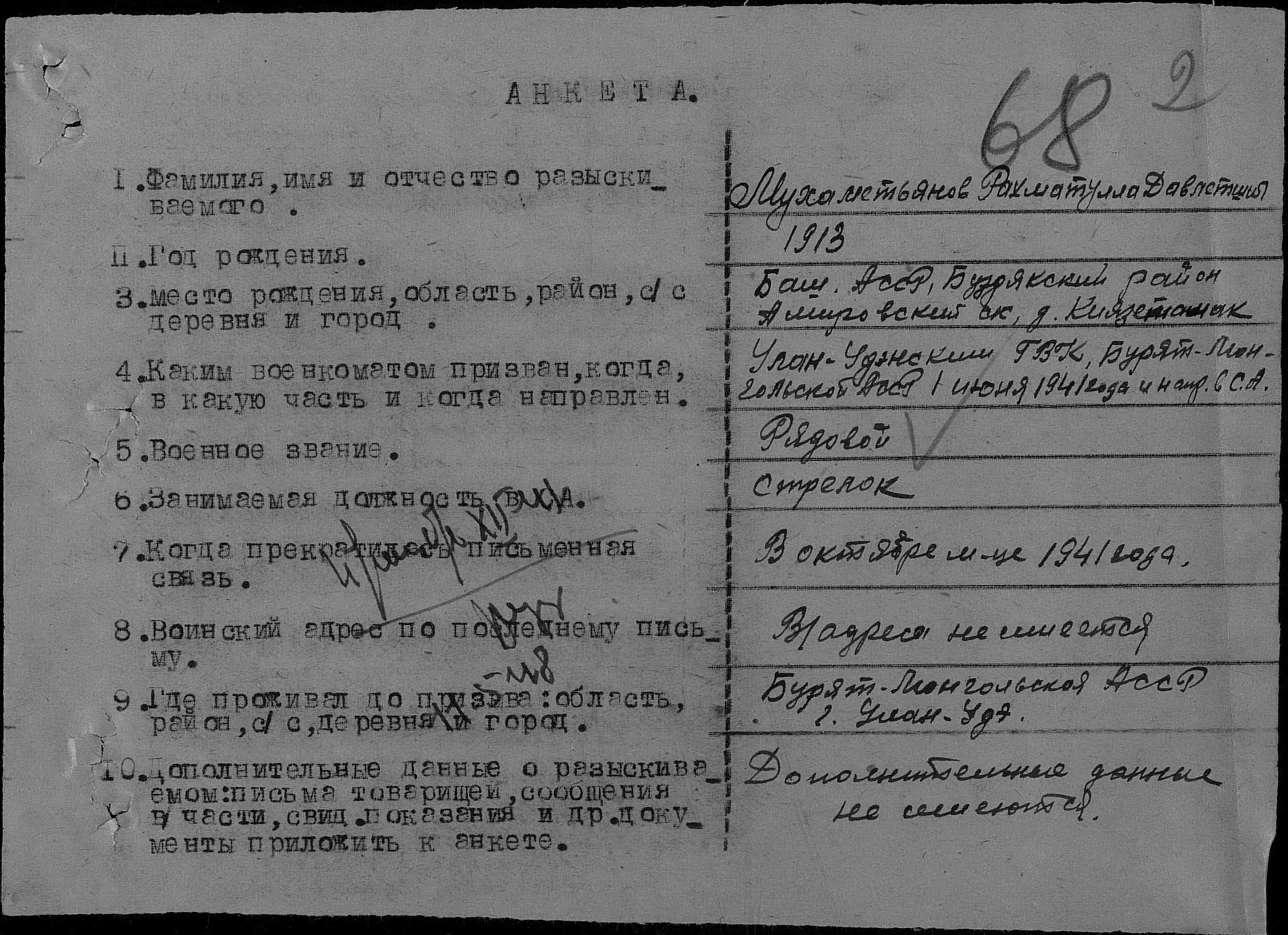 68 2
АНКЕТА.
I.Фамилия,имя и отчество разыски_
ваемого .
Мухаметьянов Рахматулла Давлетши
II.Год рождения.
1913
3.место рождения,область,район,с/с
деревня и город .
Баш. АССР, Буздякский район
Амировский с/с, д. Киязетамак
4.Каким военкоматом призван,когда,
в какую часть и когда направлен.
Улан-Удэнским ГВК, Бурят-Мон-
гольской АССР 1 июня 1941 года и напр. в С.А.
5.Военное звание.
Рядовой
6.Занимаемая должность в
Стрелок
7.Когда прекратилось письменная
связь.
В октябре м-це 1941 года.
8.Воинский адрес по последнему пись_
му.
В/адреса не имеется
9.Где проживал до призыва:область,
район,с/с,деревня и город.
Бурят-Монгольская АССР
г. Улан-Удэ.
10.Дополнительные данные о разыскива_
емом:письма товарищей,сообщения
в/части,свид.показания и др.доку_
менты приложить к анкете.
Дополнительные данные
не имеются.